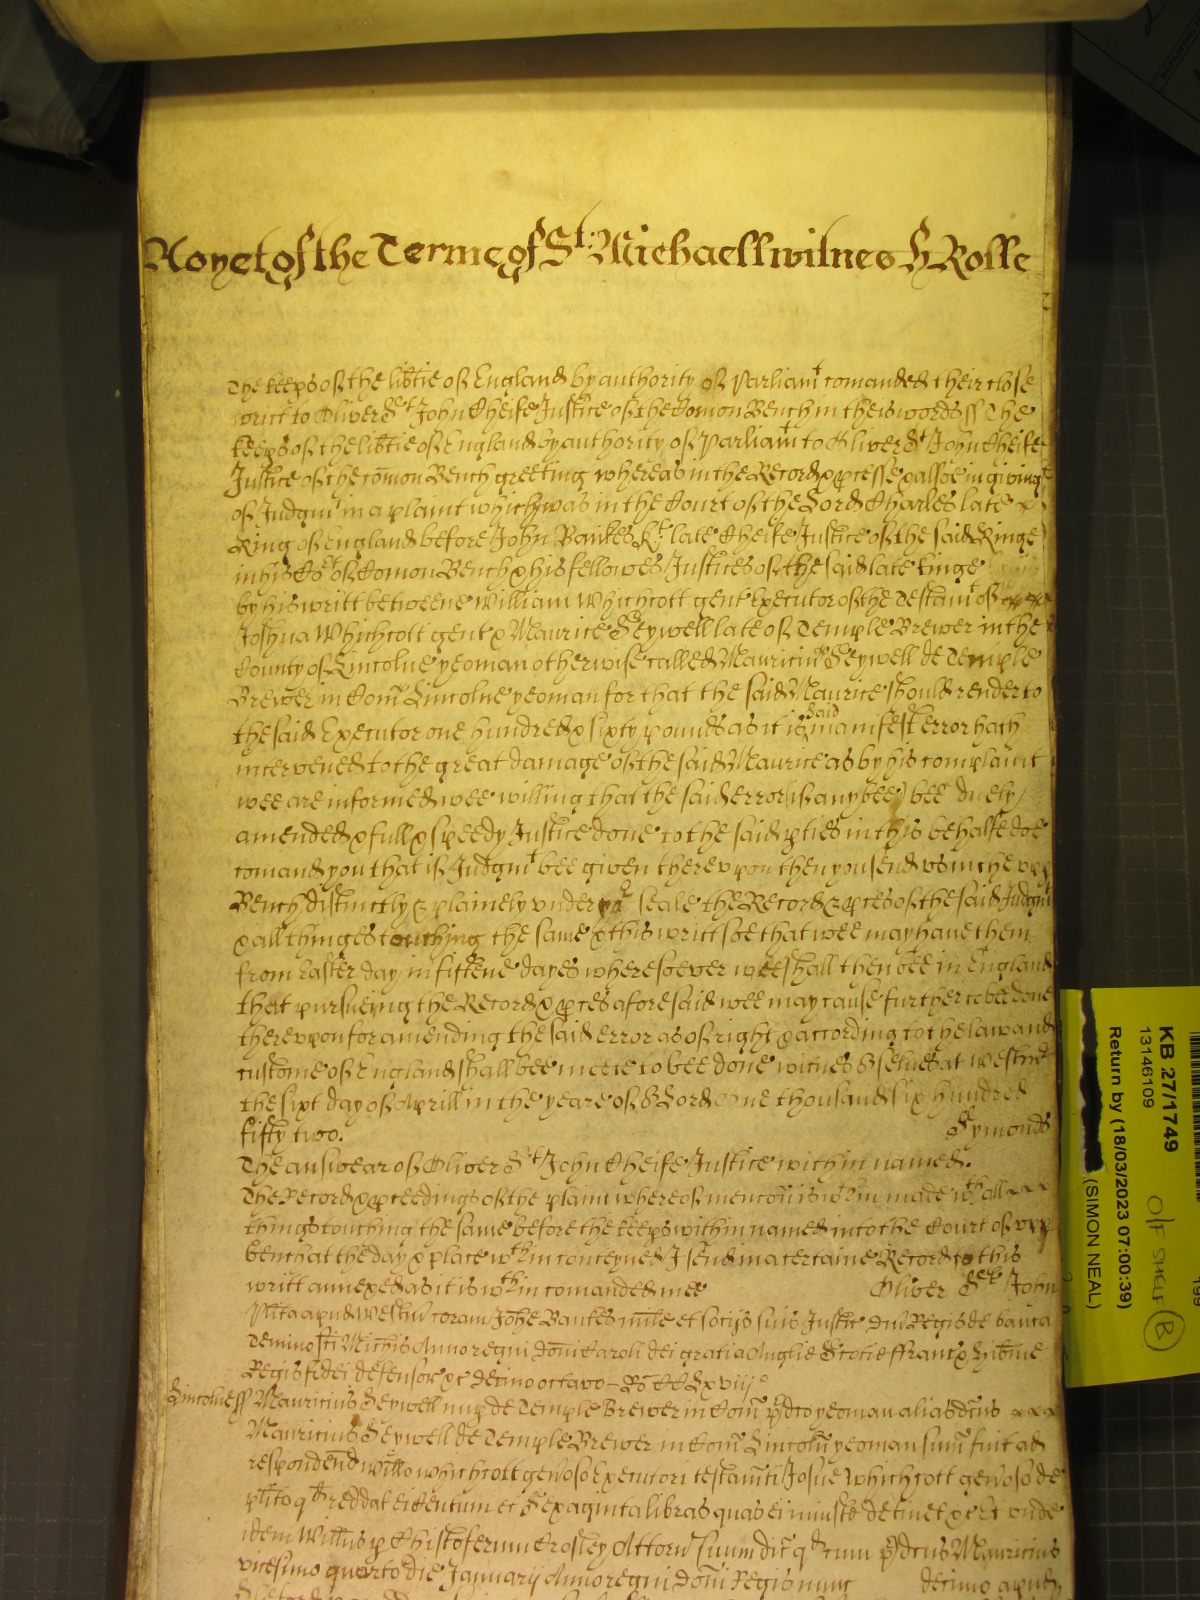 As yet of the Terme of St: Michaell wittnes H Rolle
The keeps of the libtie of England by authority of Parliamt comanded their close
writt to Oliver St John Cheife Justice of the Comon Bench in theis words ss The
keeps of the libtie of England by authority of Parliamt to Oliver St John Cheife
Justice of the comon Bench greeting whereas in the Record & pcesse & alsoe in giving
of Judgmt in a plaint which was in the Court of the Lord Charles late
King of England before John Bankes Kt: late Cheife Justice of the said Kinge
in his Cort of Comon Bench & his fellowes Justices of the said late kinge
by his writt betweene William Whichcott gent Executor of the Testamt of
Joshua Whichcott gent & Maurice Seywell late of Temple Brewer in the
County of Lincolne yeoman otherwise called Mauricius Seywell de Temple
Brewer in Com Lincolne yeoman for that the said Maurice should render to
the said Executor one hundred & sixty pounds as it is said manifest error hath
intervened to the great damage of the said Maurice as by his complaint
wee are informed wee willing that the said error (if any bee) bee duely
amended & full & speedy Justice done to the said pties in this behalfe doe
comand you that if Judgmt bee given thereupon then you send us in the upp
Bench distinctly & plainely under yor seale the Record & pces of the said Judgmt
& all thinges touching the same & this writt soe that wee may have them
from Easter day in fifteene dayes wheresoever wee shall then bee in England
that pursueing the Record & pces aforesaid wee may cause further to bee done
thereupon for amending the said error as of right & according to the law and
custome of England shall bee meete to bee done witnes or selves at Westmr
the sixt day of Aprill in the yeare of or Lord one thousand six hundred
fifty two. Symonds
The answear of Oliver St John Cheife Justice within named.
The Record & pceedings of the plaint whereof mencon is wthin made wth all
things touching the same before the keeps within named into the Court of upp
bench at the day & place wthin conteyned I send in a certaine Record to this
writt annexed as it is wthin comanded mee Oliver St John
Plita apud Westm coram Johe Bankes milite et socijs suis Justic Dni Regis de banco
Termino sti Michis Anno regni Domi Caroli dei gratia Anglie Scotie ffranc & Hibnie
Regis fidei defensor &c decimo octavo - Ro CCLxviijo
Lincolne ss Mauricius Seywell nup de Temple Brewer in Com pdco yeoman alias dcus
Mauricius Seywell de Temple Brewer in Com Lincoln yeoman sum fuit ad
respondend Willo Whichcott genoso Executori testamti Josue Whichcott genoso de
plito qd reddat ei Centum et Sexaginta libras quas ei iniuste detinet &c Et unde
idem Willus p Christoferum Crosley Attorn suum dic qd cum pdcus Mauricius
vicesimo quarto die Januarij Anno regni Domi Regis nunc decimo apud
KB 27/1749
13146109
Return by (18/03/2023 07:00:39)
(SIMON NEAL)
O/F SHELF B